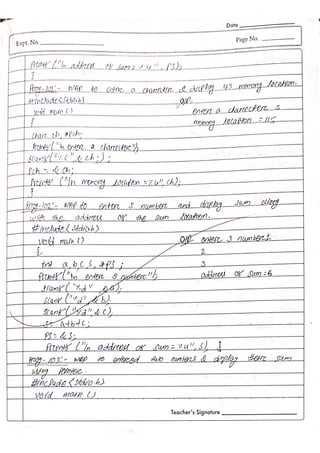 Date
Expt. No.
Page No.
Printf ("\n address of sum = %u", PS);
}
Prog-101:- WAP to store a character & display its memory location.
#include<stdio.h>
void main () O/P
{ enter a character s
char ch, *Pch; memory location = 115
Printf ("\n enter a character");
Scanf ("%c", & ch);
Pch = & ch;
Printf ("\n memory location = %u", ch);
}
Prog-102:- WAP to enter 3 number and display sum along
with the address of the sum location.
#include <stdio.h>
void main () O/P enter 3 number 1
{ 2
int a, b, c, s, *ps; 3
Printf ("\n enter 3 number"); address of sum = 6
scanf ("%d", &a);
scanf ("%d", &b);
scanf ("%d", &c);
s = a+b+c;
PS = & S;
Printf ("\n address of sum = %u", s); }
Prog-103:- WAP to entered two numbers & display there sum
using pointer.
#include <stdio.h>
void main ()
Teacher's Signature